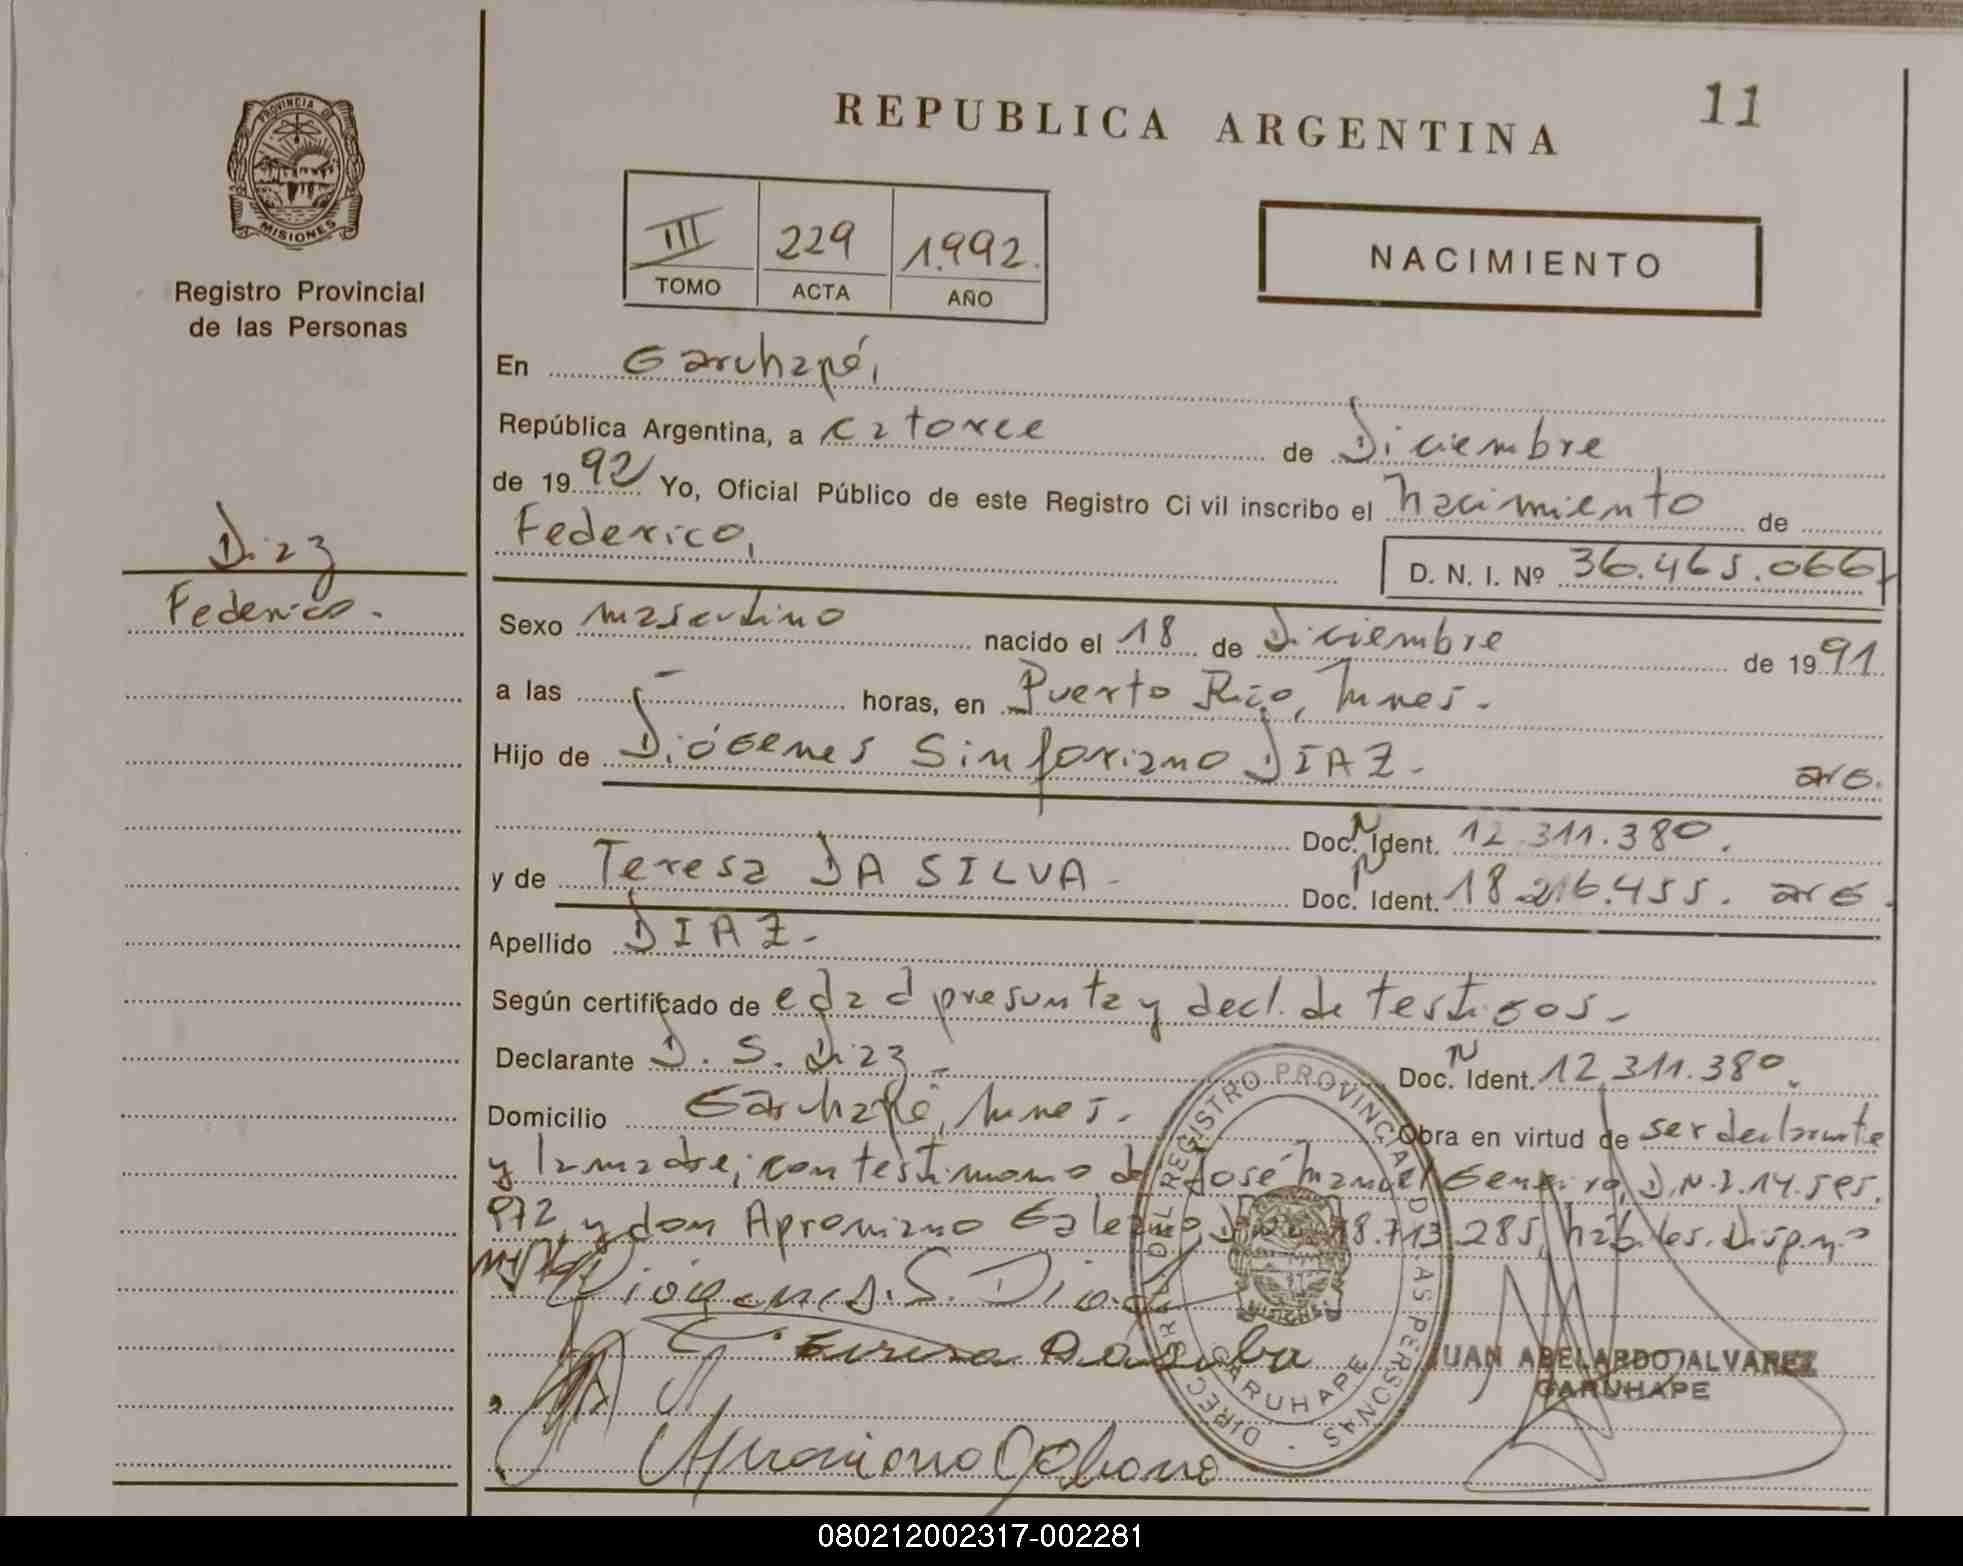 11
REPUBLICA ARGENTINA
PROVINCIA DE
MISIONES
Registro Provincial
de las Personas
III 229 1.992.
TOMO ACTA AÑO
NACIMIENTO
Diaz
Federico.
En Garuhapé,
República Argentina, a catorce de Diciembre
de 1992 Yo, Oficial Público de este Registro Civil inscribo el nacimiento de
Federico,
D. N. I. Nº 36.465.066
Sexo masculino nacido el 18 de Diciembre de 1991
a las — horas, en Puerto Rico, Mnes.
Hijo de Diógenes Sinforiano DIAZ. arg.
Doc. N Ident. 12.311.380.
y de Teresa DA SILVA Doc. N Ident. 18.216.455. arg.
Apellido DIAZ.
Según certificado de edad presunta y decl. de testigos.
Declarante D. S. Diaz Doc. N Ident. 12.311.380.
Domicilio Garuhapé, Mnes. Obra en virtud de ser declarante
y la madre; con testimonio de José Manuel D.N.I. 14.595.
972, y don Aproniano Galeano, 18.713.285, hábiles.
Diógenes S. Diaz
Teresa Da Silva
Aproniano Galeano
DIRECC. GRAL. DEL REGISTRO PROVINCIAL DE LAS PERSONAS
MISIONES
GARUHAPE
JUAN ABELARDO ALVAREZ
GARUHAPE
080212002317-002281